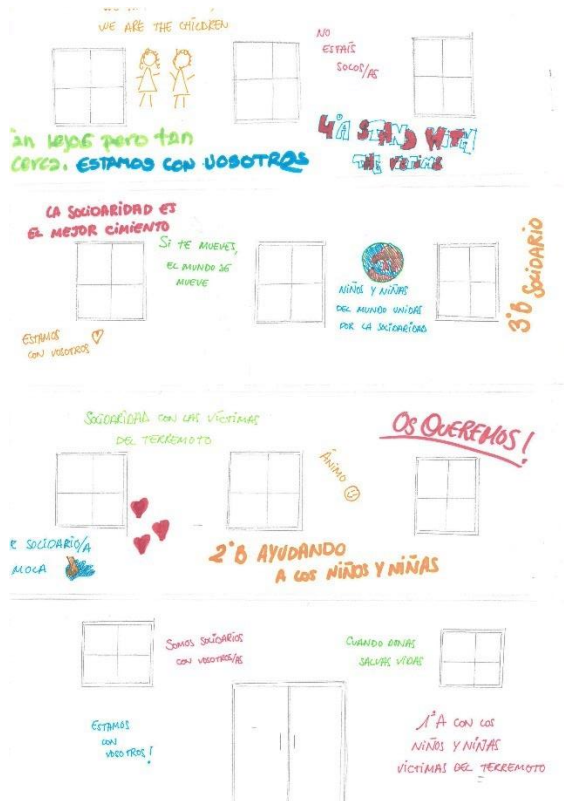 WE ARE THE CHILDREN
NO
ESTAÍS
SOLOS/AS
an lejos pero tan
cerca. ESTAMOS CON VOSOTROS
4ºA STAND WITH
THE VICTIMS
LA SOLIDARIDAD ES
EL MEJOR CIMIENTO
SI TE MUEVES,
EL MUNDO SE
MUEVE
NIÑOS Y NIÑAS
DEL MUNDO UNIDAS
POR LA SOLIDARIDAD
3ºB SOLIDARIO
ESTAMOS
CON VOSOTROS
SOLIDARIDAD CON LAS VÍCTIMAS
DEL TERREMOTO
OS QUEREMOS!
ÁNIMO
R SOLIDARIO/A
MOLA
2ºB AYUDANDO
A LOS NIÑOS Y NIÑAS
SOMOS SOLIDARIOS
CON VOSOTROS/AS
CUANDO DONAS
SALVAS VIDAS
ESTAMOS
CON
VOSOTROS!
1ºA CON LOS
NIÑOS Y NIÑAS
VÍCTIMAS DEL TERREMOTO